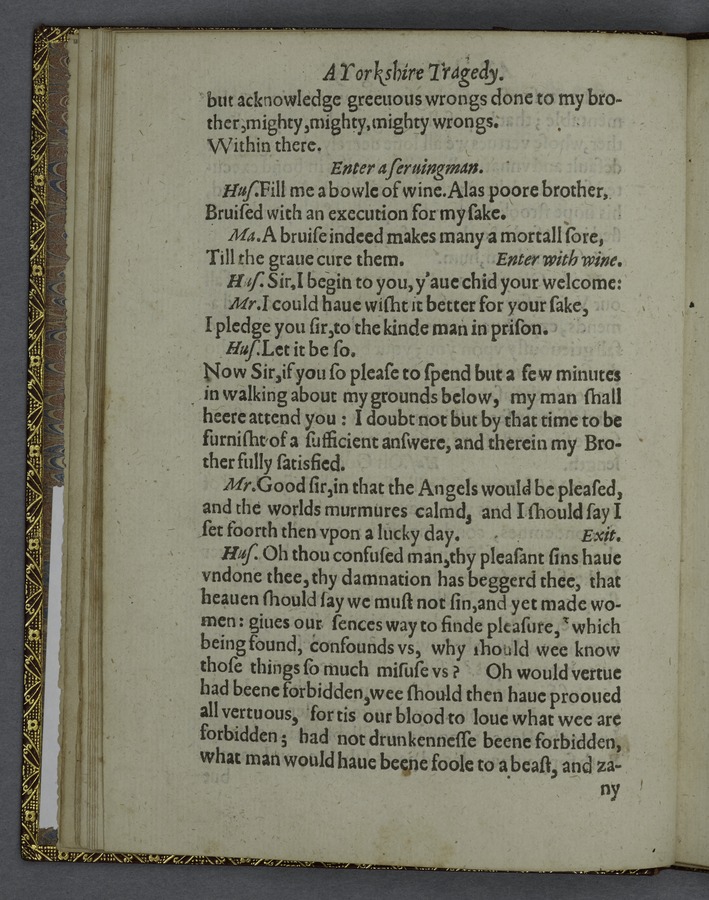 A Yorkshire Tragedy.
but acknowledge greeuous wrongs done to my bro-
ther,mighty,mighty,mighty wrongs.
Within there.
Enter a ſeruingman.
Huſ.Fill me a bowle of wine.Alas poore brother,
Bruiſed with an execution for my ſake.
Ma.A bruiſe indeed makes many a mortall ſore,
Till the graue cure them. Enter with wine.
Huſ.Sir,I begin to you, y'aue chid your welcome:
Mr.I could haue wiſht it better for your ſake,
I pledge you ſir,to the kinde man in priſon.
Huſ.Let it be ſo.
Now Sir,if you ſo pleaſe to ſpend but a few minutes
in walking about my grounds below, my man ſhall
heere attend you : I doubt not but by that time to be
furniſht of a ſufficient anſwere, and therein my Bro-
ther fully ſatisfied.
Mr.Good ſir,in that the Angels would be pleaſed,
and the worlds murmures calmd, and I ſhould ſay I
ſet foorth then vpon a lucky day. Exit.
Huſ. Oh thou confuſed man,thy pleaſant ſins haue
vndone thee,thy damnation has beggerd thee, that
heauen ſhould ſay we muſt not ſin,and yet made wo-
men: giues our ſences way to finde pleaſure, which
being found, confounds vs, why ſhould wee know
thoſe things ſo much miſuſe vs ? Oh would vertue
had beene forbidden,wee ſhould then haue prooued
all vertuous, for tis our blood to loue what wee are
forbidden ; had not drunkenneſſe beene forbidden,
what man would haue beene foole to a beaſt, and za-
ny